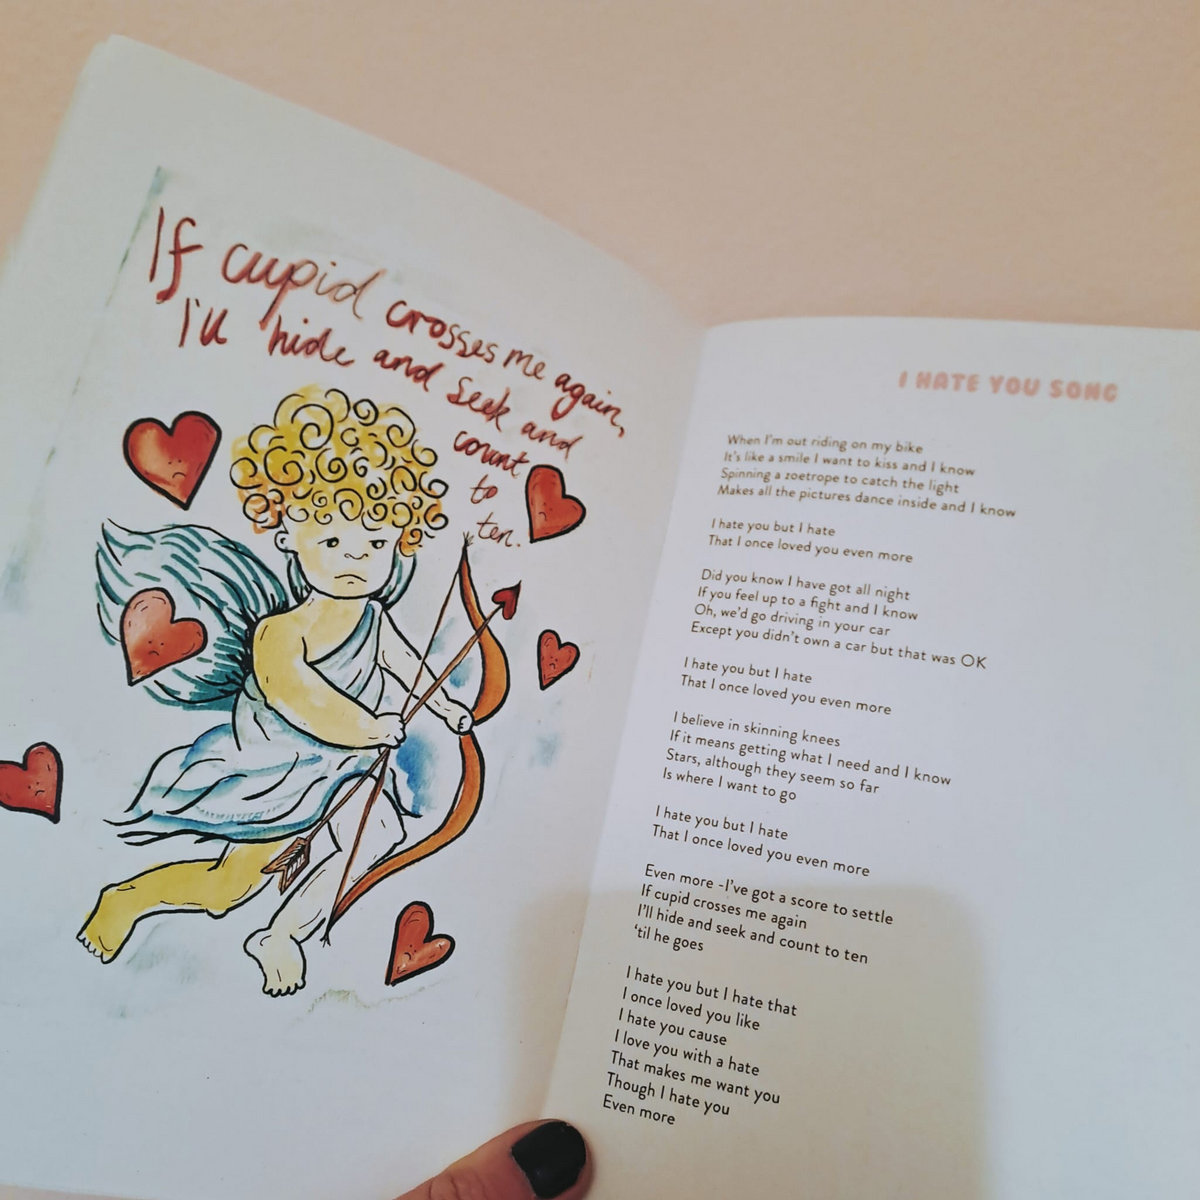 If cupid crosses me again,
I'll hide and seek and
count
to
ten.
I HATE YOU SONG
When I'm out riding on my bike
It's like a smile I want to kiss and I know
Spinning a zoetrope to catch the light
Makes all the pictures dance inside and I know
I hate you but I hate
That I once loved you even more
Did you know I have got all night
If you feel up to a fight and I know
Oh, we'd go driving in your car
Except you didn't own a car but that was OK
I hate you but I hate
That I once loved you even more
I believe in skinning knees
If it means getting what I need and I know
Stars, although they seem so far
Is where I want to go
I hate you but I hate
That I once loved you even more
Even more -I've got a score to settle
If cupid crosses me again
I'll hide and seek and count to ten
'til he goes
I hate you but I hate that
I once loved you like
I hate you cause
I love you with a hate
That makes me want you
Though I hate you
Even more